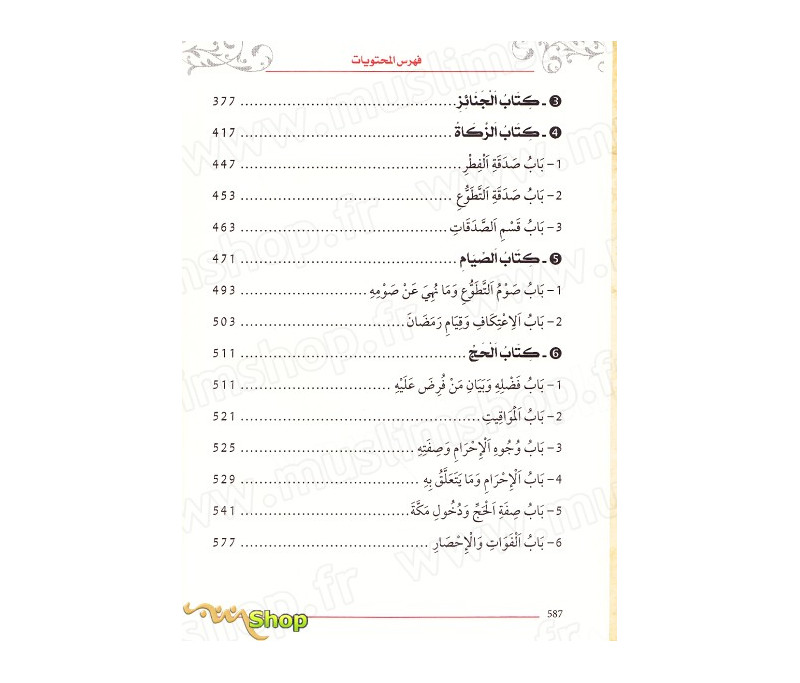 فهرس المحتويات
❸ ـ كِتَابُ الْجَنَائِزِ ........................................ 377
❹ ـ كِتَابُ الزَّكَاةُ ........................................ 417
1- بَابُ صَدَقَةِ اَلْفِطْرِ ........................................ 447
2- بَابُ صَدَقَةِ اَلتَّطَوُّعِ ........................................ 453
3- بَابُ قَسْمِ اَلصَّدَقَاتِ ........................................ 463
❺ ـ كِتَابُ الصِّيَامِ ........................................ 471
1- بَابُ صَوْمُ اَلتَّطَوُّعِ وَمَا نُهِيَ عَنْ صَوْمِهِ ........................ 493
2- بَابُ اَلِاعْتِكَافِ وَقِيَامِ رَمَضَانَ ............................... 503
❻ ـ كِتَابُ الْحَجِّ ........................................ 511
1- بَابُ فَضْلِهِ وَبَيَانِ مَنْ فُرِضَ عَلَيْهِ ............................ 511
2- بَابُ اَلْمَوَاقِيتِ ........................................ 521
3- بَابُ وُجُوهِ اَلْإِحْرَامِ وَصِفَتِهِ ................................ 525
4- بَابُ اَلْإِحْرَامِ وَمَا يَتَعَلَّقُ بِهِ ................................. 529
5- بَابُ صِفَةِ اَلْحَجِّ وَدُخُولِ مَكَّةَ ................................ 541
6- بَابُ اَلْفَوَاتِ وَالْإِحْصَارِ ................................... 577
587
Shop
www.muslimshop.fr